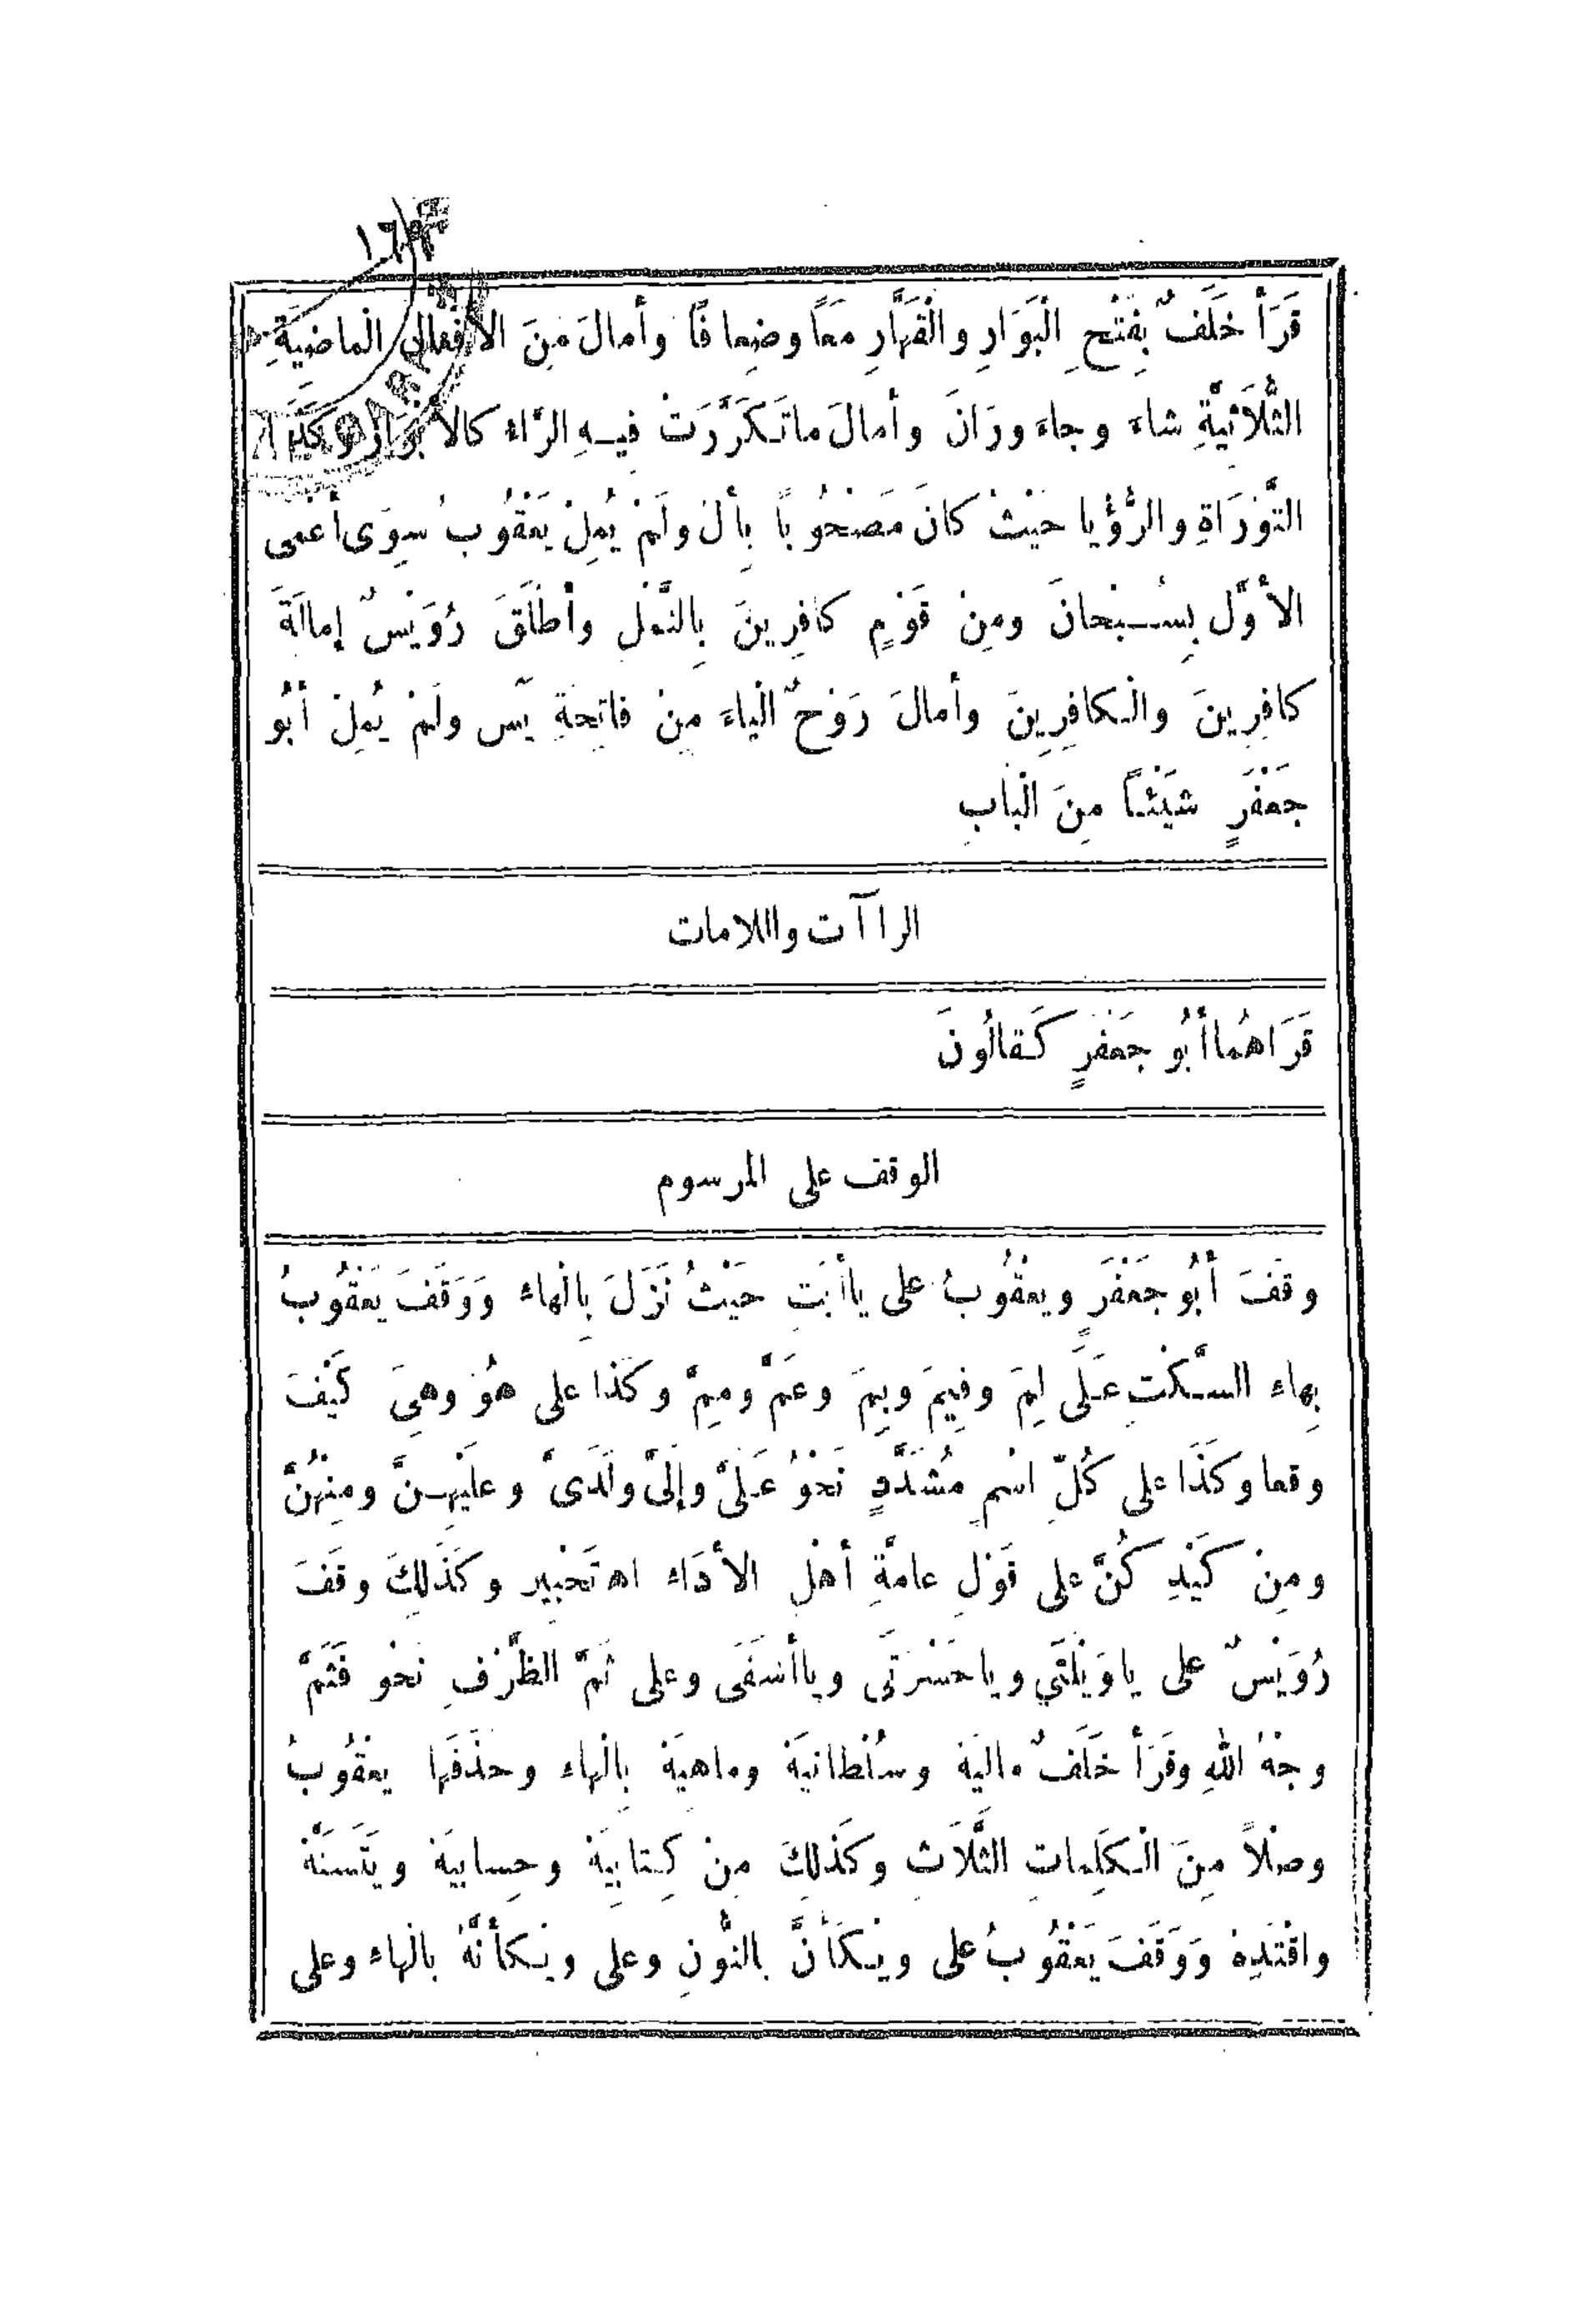 قَرَأَ خَلَفٌ بِفَتْحِ الْبَوَارِ وَالْقَهَّارِ مَعًا وضِعافًا وأمالَ مِنَ الأَفْعَالِ الْماضِيَةِ
الثُّلَاثِيَّةِ شاءَ وجاءَ ورَانَ وأمالَ ماتَكَرَّرَتْ فِيهِ الرَّاءُ كالأَبْرَارِ وكَذَا
التَّوْرَاةِ والرُّؤْيا حَيْثُ كانَ مَصْحُوبًا بِأَلْ ولَمْ يُمِلْ يَعْقُوبُ سِوَى أعْمى
الأوَّلِ بِسُبْحانَ ومِنْ قَوْمٍ كافِرِينَ بِالنَّمْلِ وأَطْلَقَ رُوَيْسٌ إمالَةَ
كافِرِينَ والْكافِرِينَ وأمالَ رَوْحٌ الْياءَ مِنْ فاتِحَةِ يٓس ولَمْ يُمِلْ أَبُو
جَعْفَرٍ شَيْئًا مِنَ الْبابِ
الراآت واللامات
قَرَاهُما أَبُو جَعْفَرٍ كَقالُونَ
الوقف على المرسوم
وقَفَ أَبُو جَعْفَرٍ ويعقُوبُ على ياأَبَتِ حَيْثُ نَزَلَ بِالْهاءِ وَوَقَفَ يَعْقُوبُ
بِهاءِ السَّكْتِ عَلَى لِمَ وفِيمَ وبِمَ وعَمَّ ومِمَّ وكَذا على هُوَ وهِيَ كَيْفَ
وقعا وكَذَا على كُلِّ اسْمٍ مُشَدَّدٍ نَحْوُ عَلَىَّ وإلَىَّ ولَدَىَّ وعَلَيْهِنَّ ومِنْهُنَّ
ومِنْ كَيْدِ كُنَّ على قَوْلِ عامَّةِ أهْلِ الأَدَاءِ اه تَحْبِير وكَذَلِكَ وقَفَ
رُوَيْسٌ على ياوَيْلَتَي وياحَسْرَتَى وياأَسَفَى وعلى ثَمَّ الظَّرْفِ نَحْو فَثَمَّ
وجْهُ اللهِ وقَرَأَ خَلَفٌ مالِيَهْ وسُلْطانِيَهْ وماهِيَهْ بِالْهاءِ وحَذَفَها يعْقُوبُ
وصْلاً مِنَ الْكَلِماتِ الثَّلَاثِ وكَذلِكَ مِنْ كِتابِيَهْ وحِسابِيَهْ ويَتَسَنَّهْ
واقْتَدِهْ وَوَقَفَ يَعْقُوبُ على وَيْكَأَنَّ بالنُّونِ وعلى وَيْكأنَّهُ بالْهاءِ وعلى